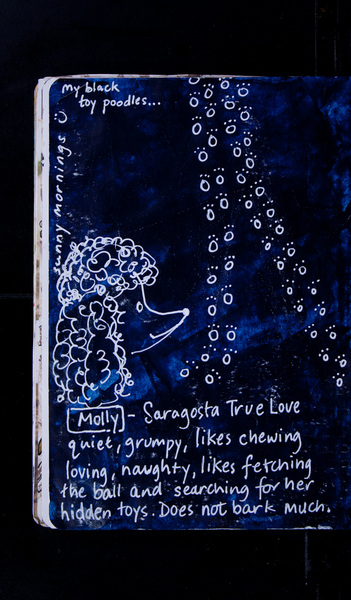 my black
toy poodles...
sunny mornings
Molly - Saragosta True Love
quiet, grumpy, likes chewing
loving, naughty, likes fetching
the ball and searching for her
hidden toys. Does not bark much.